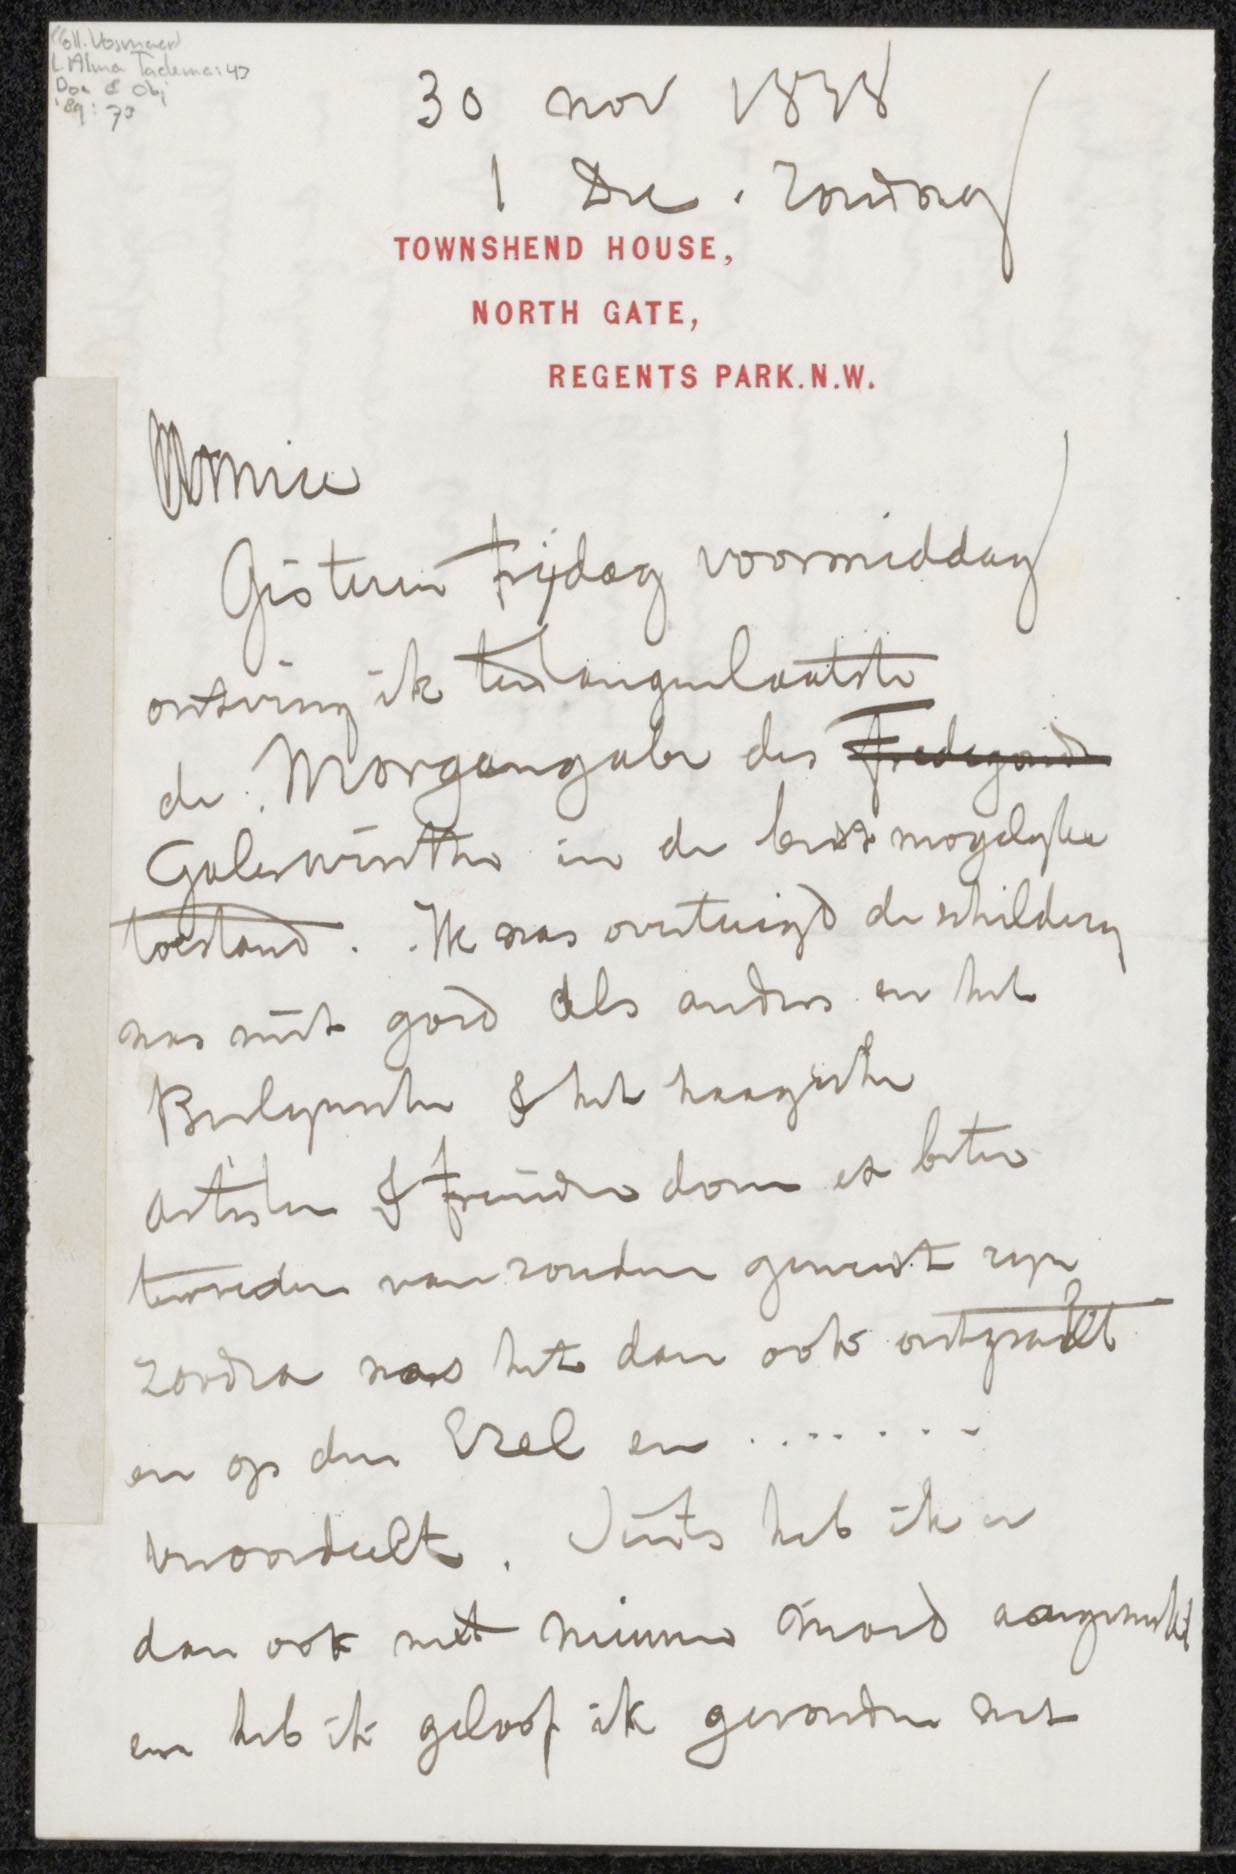 Coll. Vosmaer
L. Alma Tadema: 43
Doa & Obj
'89: 73
30 nov 1878
1 Dec. Zondag
TOWNSHEND HOUSE,
NORTH GATE,
REGENTS PARK. N.W.
Amice
Gisteren Frijdag voormiddag
ontving ik ten langenlaatste
de Morgengabe des Fredegond
Galeswinthe in de best mogelyke
toestand. Ik was overtuigd de schildery
was niet goed als anders en het
& het haagsche
artisten & frienden dom er beter
tevreden van zouden geweest zyn
zoodra was het dan ook ontpakt
en op den Ezel en .......
veroordeelt. Sints heb ik er
dan ook met nieuwe moed aangewerkt
en heb ik geloof ik gevonden wat